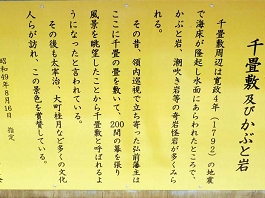 千畳敷及びかぶと岩
千畳敷周辺は寛政4年（1792）の地震
で海床が隆起し水面にあらわれたところで、
かぶと岩、潮吹き岩等の奇岩怪岩が多くみら
れる。
その昔、領内巡視で立ち寄った弘前藩主は
ここに千畳の畳を敷いて、200間の幕を張り
風景を眺望したことから千畳敷と呼ばれるよ
うになったと言われている。
その後も太宰治、大町桂月など多くの文化
人らが訪れ、この景色を賞賛している。
昭和49年8月16日 指定